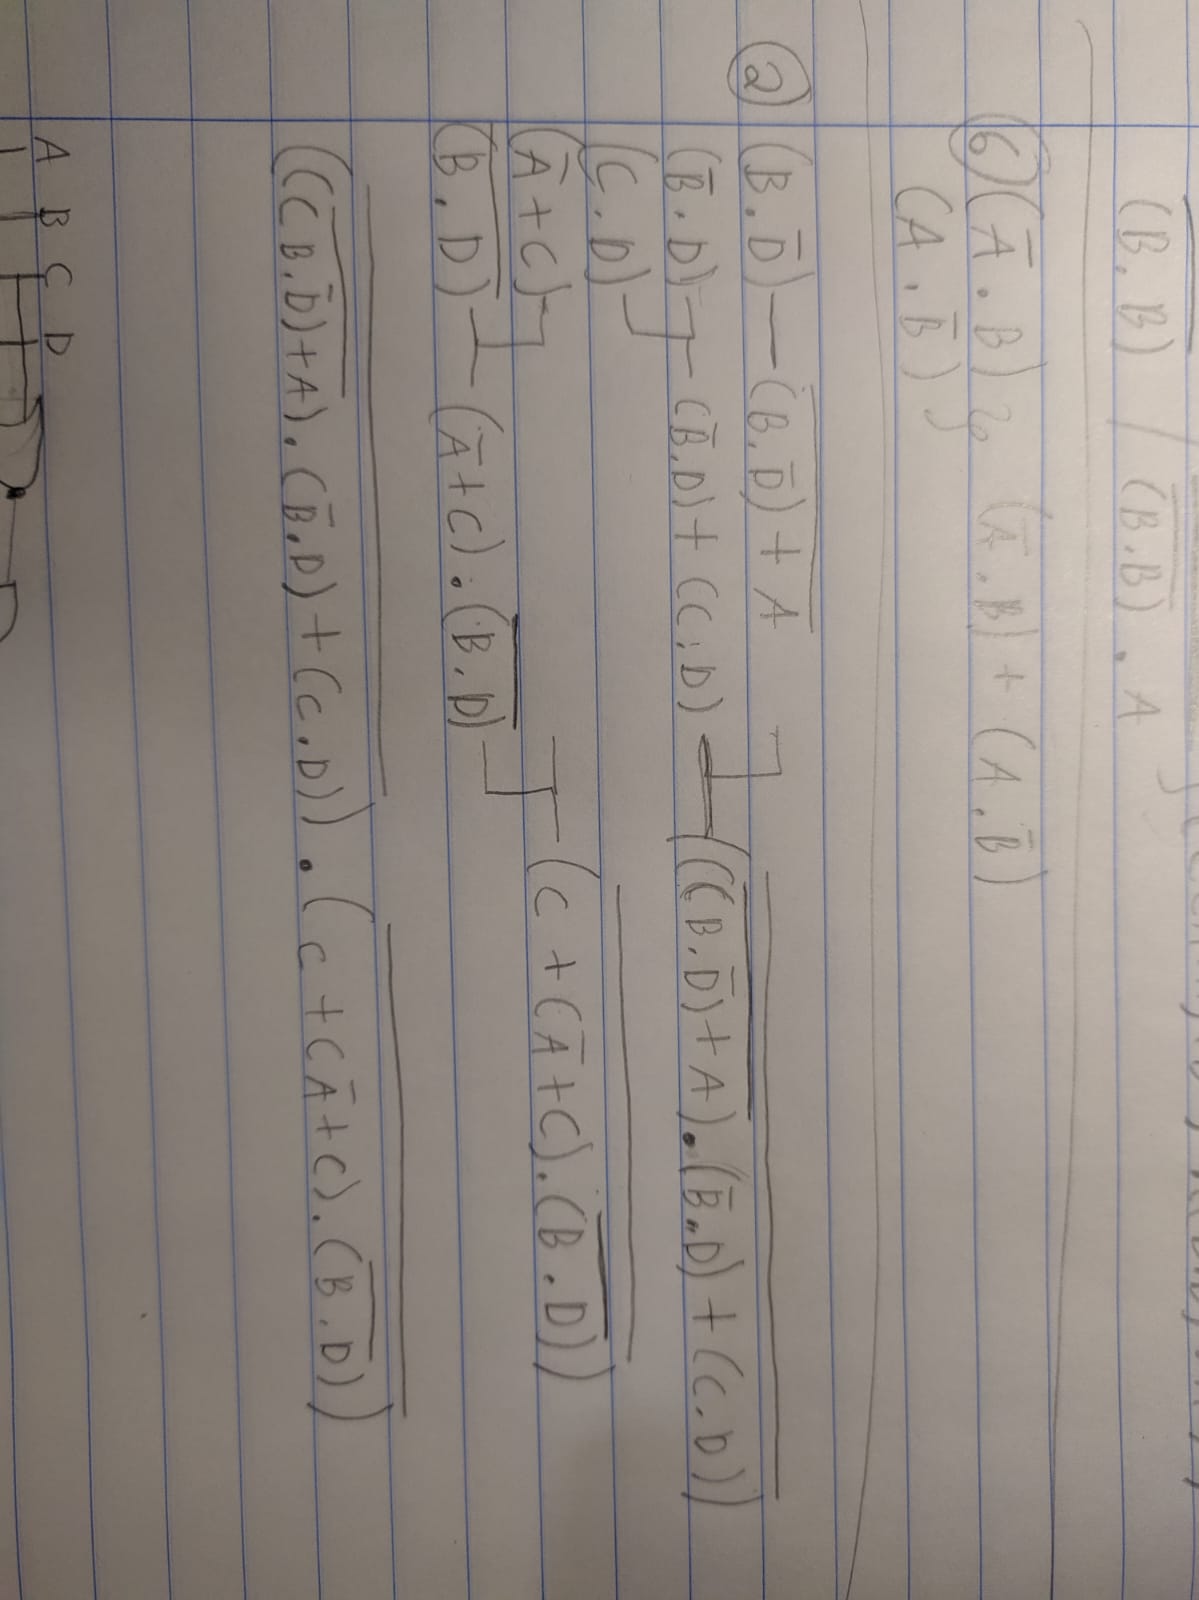 (B.B) / (B̅.̅B̅) . A
6) (A̅ . B) (A̅ . B) + (A . B̅)
(A . B̅)
2 (B . D̅) — (B̅.̅D̅)̅ ̅+̅ ̅A̅
(B̅ . D) (B̅.D) + (C.D) — ((B.D̅)+A) . (B̅.D) + (C.D))
(C . D)
(A̅ + C) (C + (A̅+C).(B.D))
(B . D) — (A̅+C) . (B.D)
((B.D̅)+A).(B̅.D)+(C.D)) . (C + (A̅+C).(B.D))
A B C D